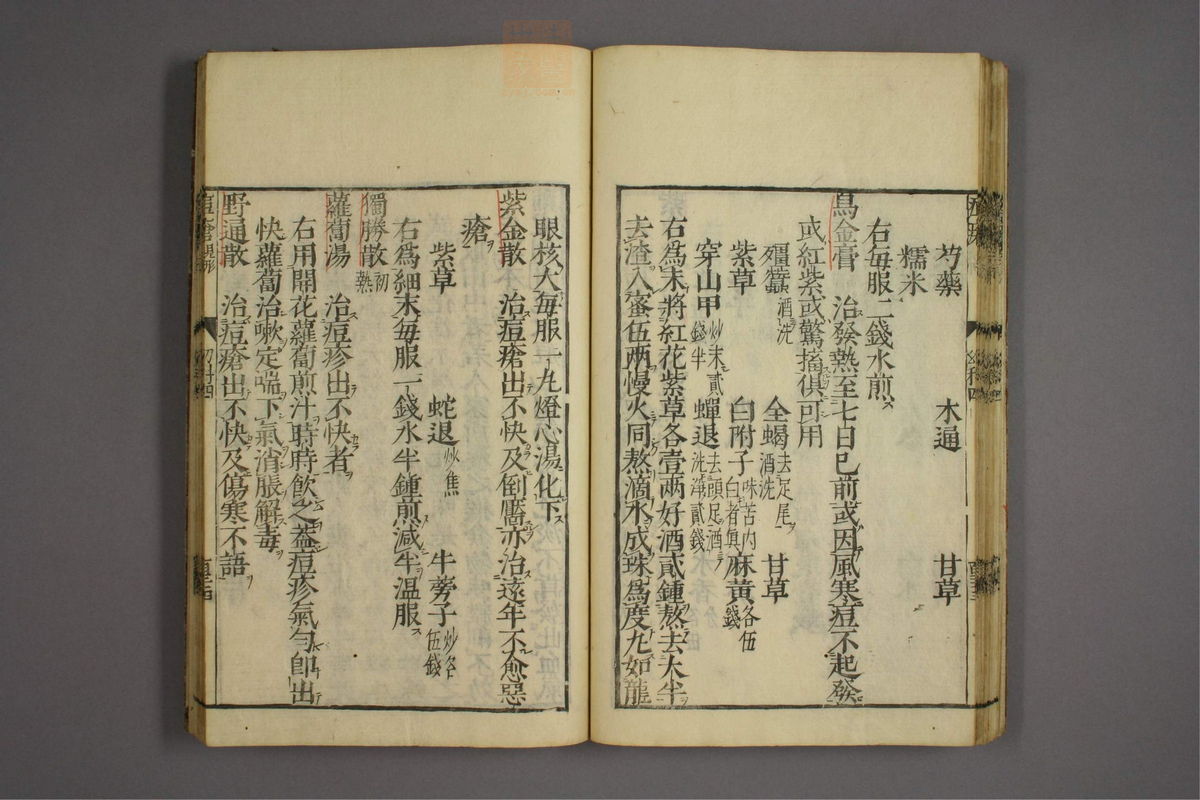 芍藥 木通 甘草
糯米
右毎服二錢水煎
烏金膏 治發熱至七日已前或因風寒痘不起發
或紅紫或驚搐俱可用
殭蠶酒洗 全蝎去足尾酒洗 甘草
紫草 白附子味苦内白者眞 麻黃各伍錢
穿山甲炒末貳錢半 蟬退去頭足酒洗淨貳錢
右爲末將紅花紫草各壹兩好酒貳鍾熬去大半
去渣入蜜伍兩慢火同熬滴水成珠爲度丸如龍
眼核大毎服一丸燈心湯化下
紫金散 治痘瘡出不快及倒靨亦治遠年不愈惡
瘡
紫草 蛇退炒焦 牛蒡子炒各伍錢
右爲細末毎服一錢水半鍾煎減半温服
獨勝散初熱
蘿蔔湯 治痘疹出不快者
右用開花蘿蔔煎汁時時飲之蓋痘疹氣勻即出
快蘿蔔治嗽定喘下氣消脹解毒
野通散 治痘瘡出不快及傷寒不語